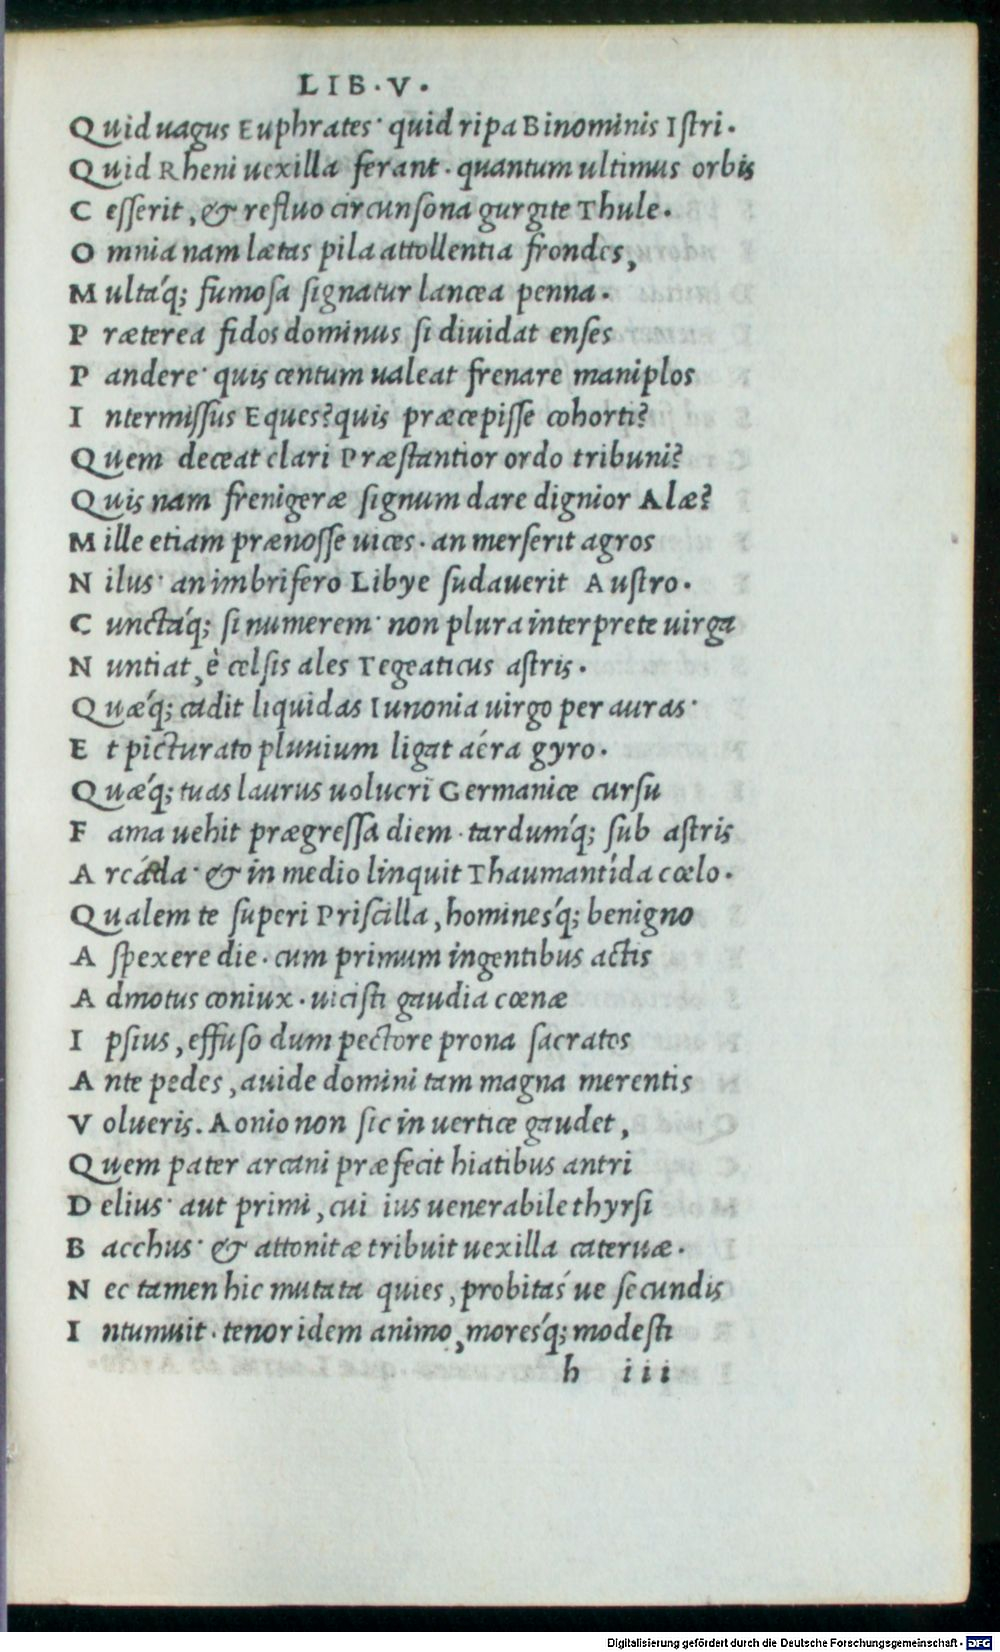 LIB·V·
Quid uagus Euphrates· quid ripa Binominis Istri·
Quid Rheni uexilla ferant· quantum ultimus orbis
Cesserit, & refluo circunsona gurgite Thule·
Omnia nam lætas pila attollentia frondes,
Multáq; fumosa signatur lancea penna·
Præterea fidos dominus si diuidat enses
Pandere· quis centum ualeat frenare maniplos
Intermissus Eques? quis præcepisse cohorti?
Quem deceat clari Præstantior ordo tribuni?
Quis nam frenigeræ signum dare dignior Alæ?
Mille etiam prænosse uices· an merserit agros
Nilus· an imbrifero Libye sudauerit Austro·
Cunctáq; si numerem· non plura interprete uirga
Nuntiat, è celsis ales Tegeaticus astris·
Quæq́; cadit liquidas Iunonia uirgo per auras·
Et picturato pluuium ligat aéra gyro·
Quæq́; tuas laurus uolucri Germanice cursu
Fama uehit prægressa diem· tardumq́; sub astris
Arcáda· & in medio linquit Thaumantída cœlo·
Qualem te superi Priscilla, hominesq́; benigno
Aspexere die· cum primum ingentibus actis
Admotus coniux· uicisti gaudia cœnæ
Ipsius, effuso dum pectore prona sacratos
Ante pedes, auide domini tam magna merentis
Volueris. Aonio non sic in uertice gaudet,
Quem pater arcani præfecit hiatibus antri
Delius· aut primi, cui ius uenerabile thyrsi
Bacchus· & attonitæ tribuit uexilla cateruæ·
Nec tamen hic mutata quies, probitaś ue secundis
Intumuit· tenor idem animo, moresq́; modesti
h iii
Digitalisierung gefördert durch die Deutsche Forschungsgemeinschaft - DFG